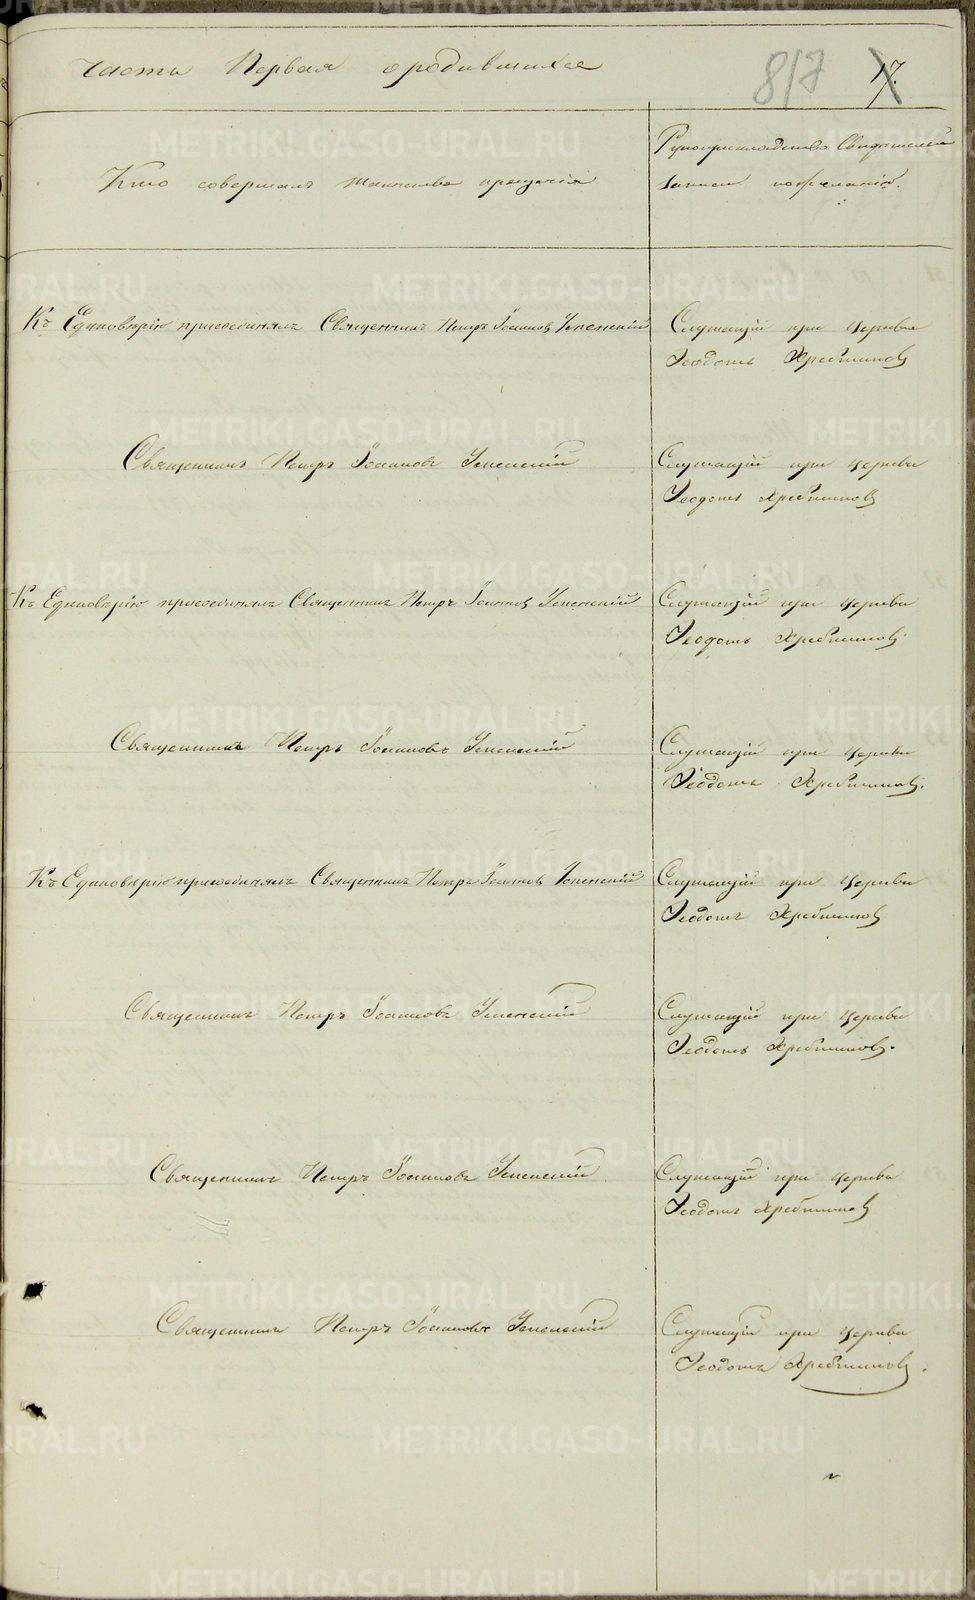 Часть Первая о родившихся
817
17.
Кто совершалъ таинство крещенія
Рукоприкладство Свидѣтелей
записи по желанію.
Къ Единовѣрію присоединялъ Священникъ Петръ Іоанновъ Успенскій
Служащій при церкви
Ѳеодотъ
Священникъ Петръ Іоанновъ Успенскій
Служащій при церкви
Ѳеодотъ
Къ Единовѣрію присоединялъ Священникъ Петръ Іоанновъ Успенскій
Служащій при церкви
Ѳеодотъ
Священникъ Петръ Іоанновъ Успенскій
Служащій при церкви
Ѳеодотъ
Къ Единовѣрію присоединялъ Священникъ Петръ Іоанновъ Успенскій
Служащій при церкви
Ѳеодотъ
Священникъ Петръ Іоанновъ Успенскій
Служащій при церкви
Ѳеодотъ
Священникъ Петръ Іоанновъ Успенскій
Служащій при церкви
Ѳеодотъ
Священникъ Петръ Іоанновъ Успенскій
Служащій при церкви
Ѳеодотъ
METRIKI.GASO-URAL.RU